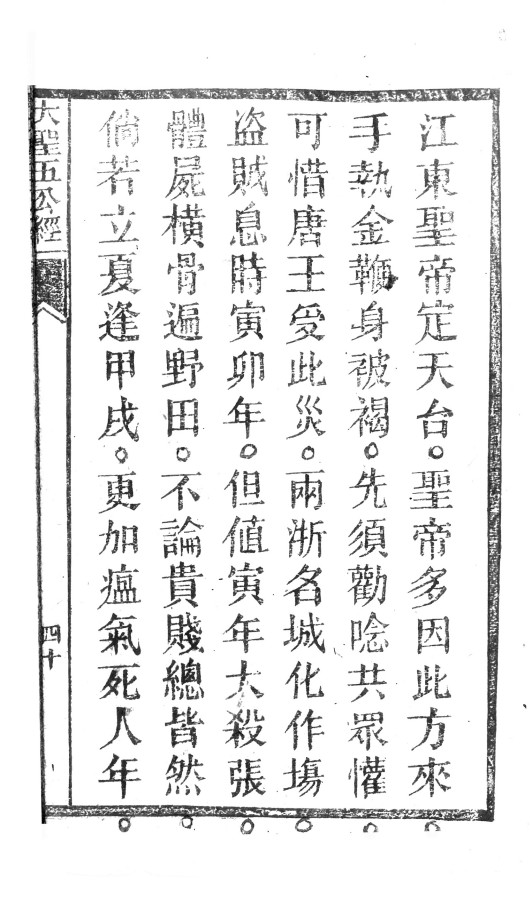 江東聖帝定天台。聖帝多因此方來。
手執金鞭身被褐。先須勸唸共眾懽。
可惜唐王受此災。兩浙名城化作塲。
盜賊息時寅卯年。但値寅年大殺張。
體屍橫骨遍野田。不論貴賤總皆然。
倘若立夏逢甲戌。更加瘟氣死人年。
大聖五公經
四十